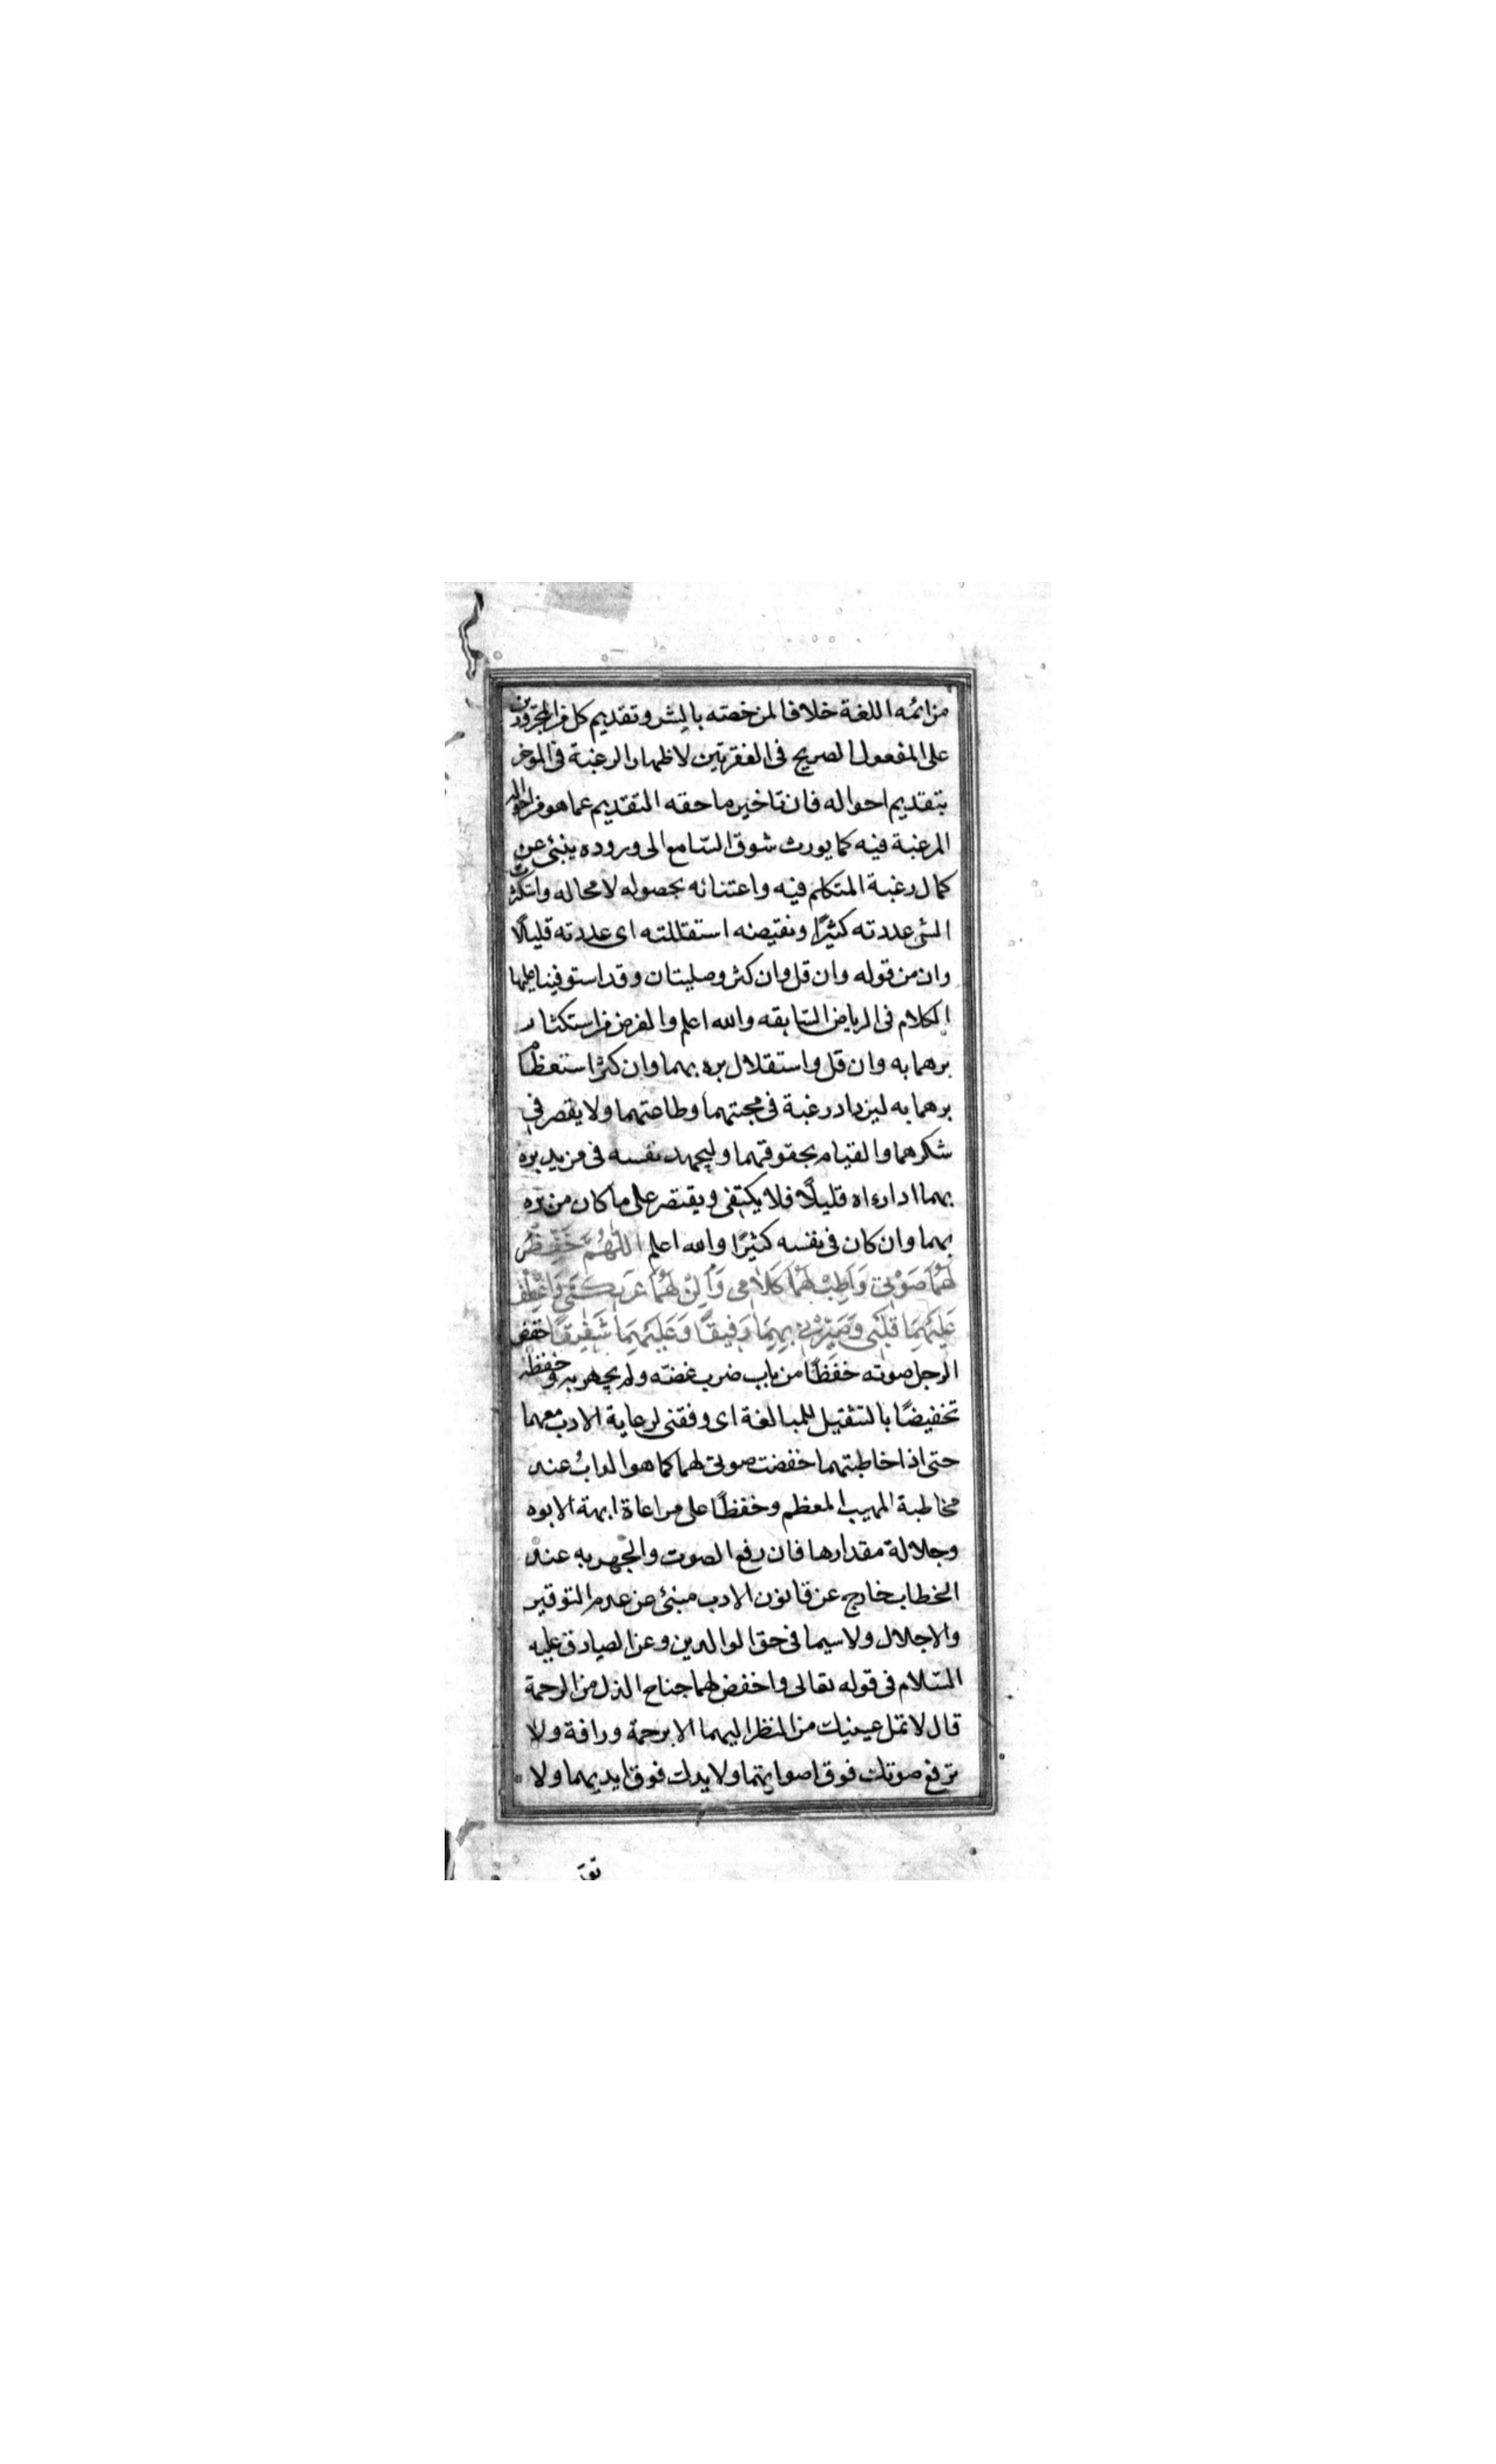 من ائمه اللغة خلافا لمن خصته بالبشر وتقديم كل من المجرورين
على المفعول الصريح فى الفقرتين لاظهار الرغبة فى الموخر
بتقديم احواله فان تاخير ما حقه التقديم عما هو من احواله
المرغبة فيه كما يورث شوق السّامع الى وروده ينبئ عن
كمال رغبة المتكلم فيه واعتنائه بحصوله لا محاله واستكثرت
الشئ عددته كثيرًا ونقيضه استقللته اى عددته قليلًا
وان من قوله وان قل وان كثر وصليتان وقد استوفينا عليها
الكلام فى الرياض السّابقه والله اعلم والغرض من استكثار
برهما به وان قل واستقلال بره بهما وان كثر استعظام
برهما به ليزداد رغبة فى محبتهما وطاعتهما ولا يقصر فى
شكرهما والقيام بحقوقهما وليجهد نفسه فى مزيد بره
بهما اذا رءاه قليلًا فلا يكتفى ويقتصر على ما كان من بره
بهما وان كان فى نفسه كثيرًا والله اعلم اللّٰهُمَّ خَفِّظْ
لَهُمَا صَوْتِى وَاَطِبْ لَهُمَا كَلَامِى وَاَلِنْ لَهُمَا عَرِيكَتِى وَاعْطِفْ
عَلَيْهِمَا قَلْبِى وَصَيِّرْنِى بِهِمَا رَفِيقًا وَعَلَيْهِمَا شَفِيقًا خفض
الرجل صوته خفظًا من باب ضرب غضّه ولم يجهر به وخفظه
تخفيضًا بالتثقيل للمبالغة اى وفقنى لرعاية الادب معهما
حتى اذا خاطبتهما خفضت صوتى لهما كما هو الداب عند
مخاطبة المهيب المعظم وخفظًا على مراعاة ابهة الابوه
وجلالة مقدارها فان رفع الصوت والجهر به عند
الخطاب خارج عن قانون الادب منبئ عن عدم التوقير
والاجلال ولا سيما فى حق الوالدين وعن الصادق عليه
السّلام فى قوله تعالى واخفض لهما جناح الذل من الرحمة
قال لا تمل عينيك من النظر اليهما الا برحمة ورافة ولا
ترفع صوتك فوق اصواتهما ولا يدك فوق ايديهما ولا
تقد